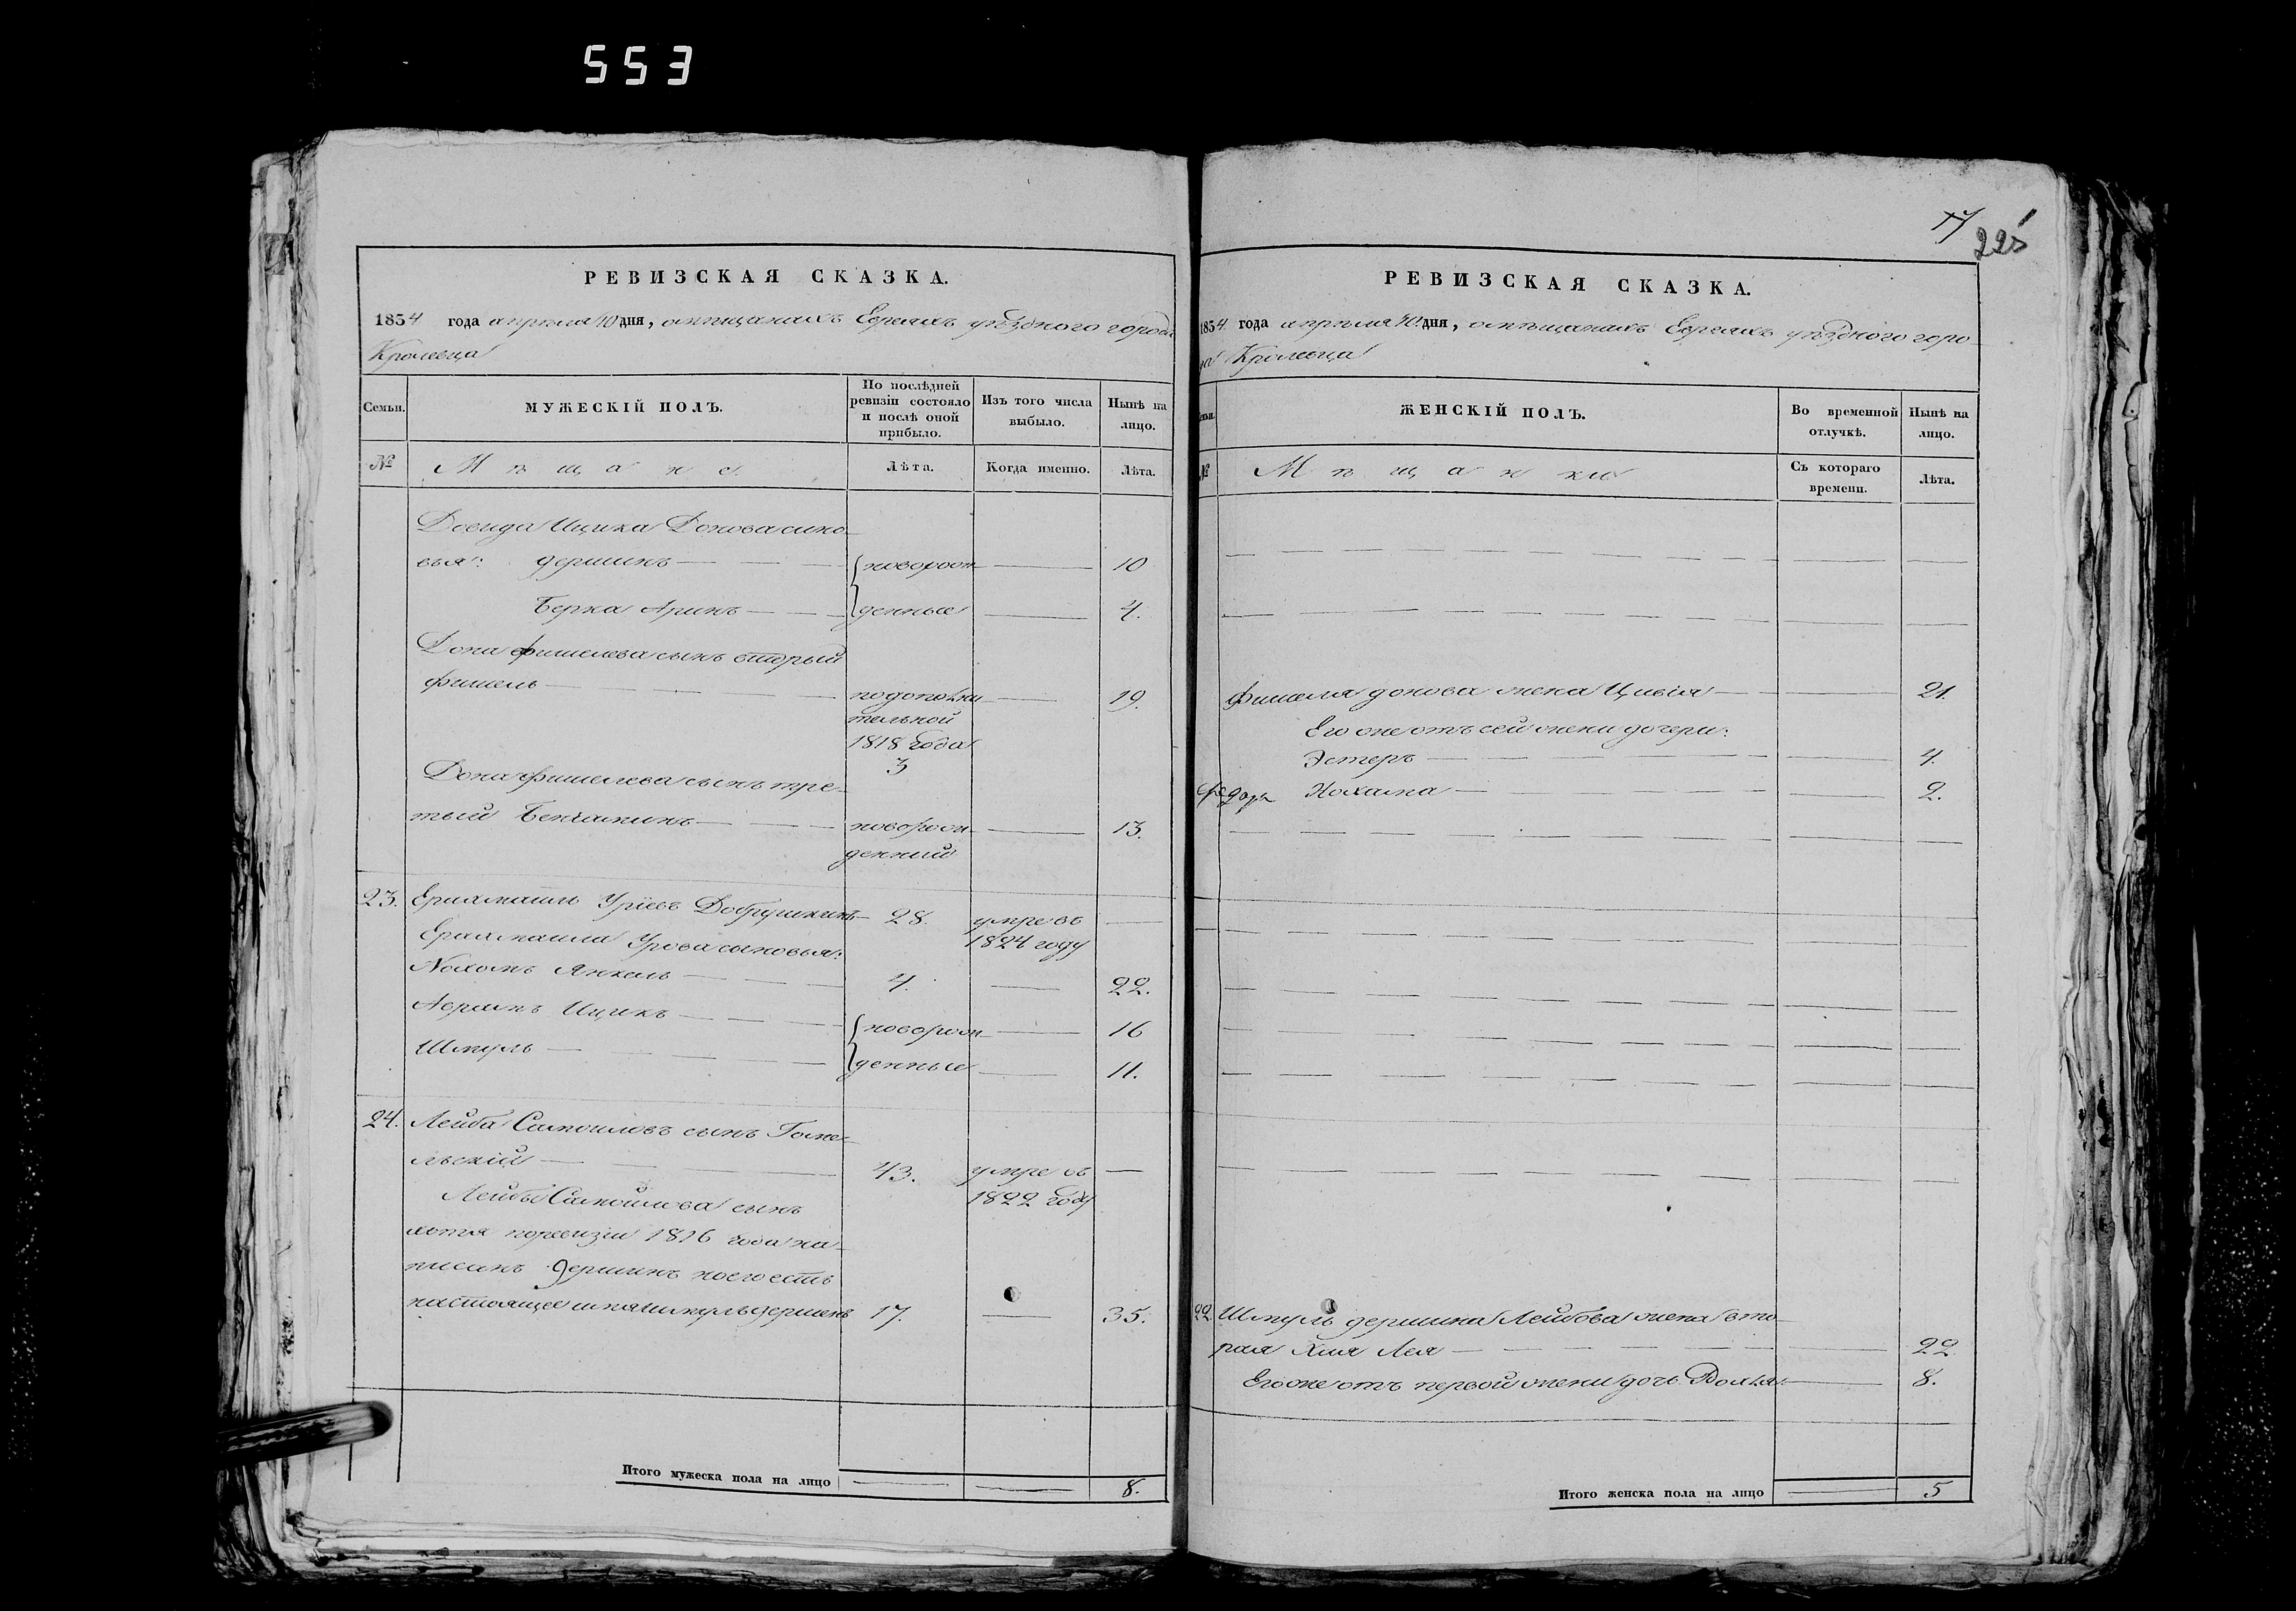 553
РЕВИЗСКАЯ СКАЗКА.
1834 года апреля 10 дня, о мѣщанахъ Евреяхъ уѣзднаго города
Кролевца
Семьи.
МУЖЕСКІЙ ПОЛЪ.
По послѣдней
ревизіи состояло
и послѣ оной
прибыло.
Изъ того числа
выбыло.
Нынѣ на
лицо.
№
Мѣщане.
Лѣта.
Когда именно.
Лѣта.
Довида Ицика Донова сино-
вья: Гершинъ — новорож — 10
Берка Аринъ — денные — 4.
Дона Фишелева сынъ вторый
Фишель — подополни — 19.
тельной
1818 года
3
Дона Фишелева сынъ тре-
тый Бенiаминъ — новорож — 13.
денний
23. Урiевъ Добрушкинъ 28. умре въ —
Урова сыновья: 1824 году
Нохомъ Янкель — 4. — 22.
Абрамъ Ицикъ — новорож — 16
Шмуль — денные — 11.
24. Лейба Самойловъ сынъ Гоме-
льскiй — 43. умре въ —
Лейбы Самойлова сынъ 1822 году
хотя по ревизiи 1816 года на-
писанъ Гершинъ но его есть
настоящее имя Шмуль Гершенъ 17. — 35.
Итого мужеска пола на лицо — — 8.
17
225
РЕВИЗСКАЯ СКАЗКА.
1834 года апреля 10 дня, о мѣщанахъ Евреяхъ уѣзднаго горо-
да Кролевца
ЖЕНСКІЙ ПОЛЪ.
Во временной
отлучкѣ.
Нынѣ на
лицо.
№
Мѣщанки
Съ котораго
времени.
Лѣта.
Фишеля Донова жена Цивiя — 21.
Его же отъ сей жени дочери:
Эстеръ — 4.
Нохама — 2.
22. Шмуль Гершина Лейбова жена вто-
рая Хая Лея — 22.
Его же отъ первой жени дочь — 8.
Итого женска пола на лицо — 5